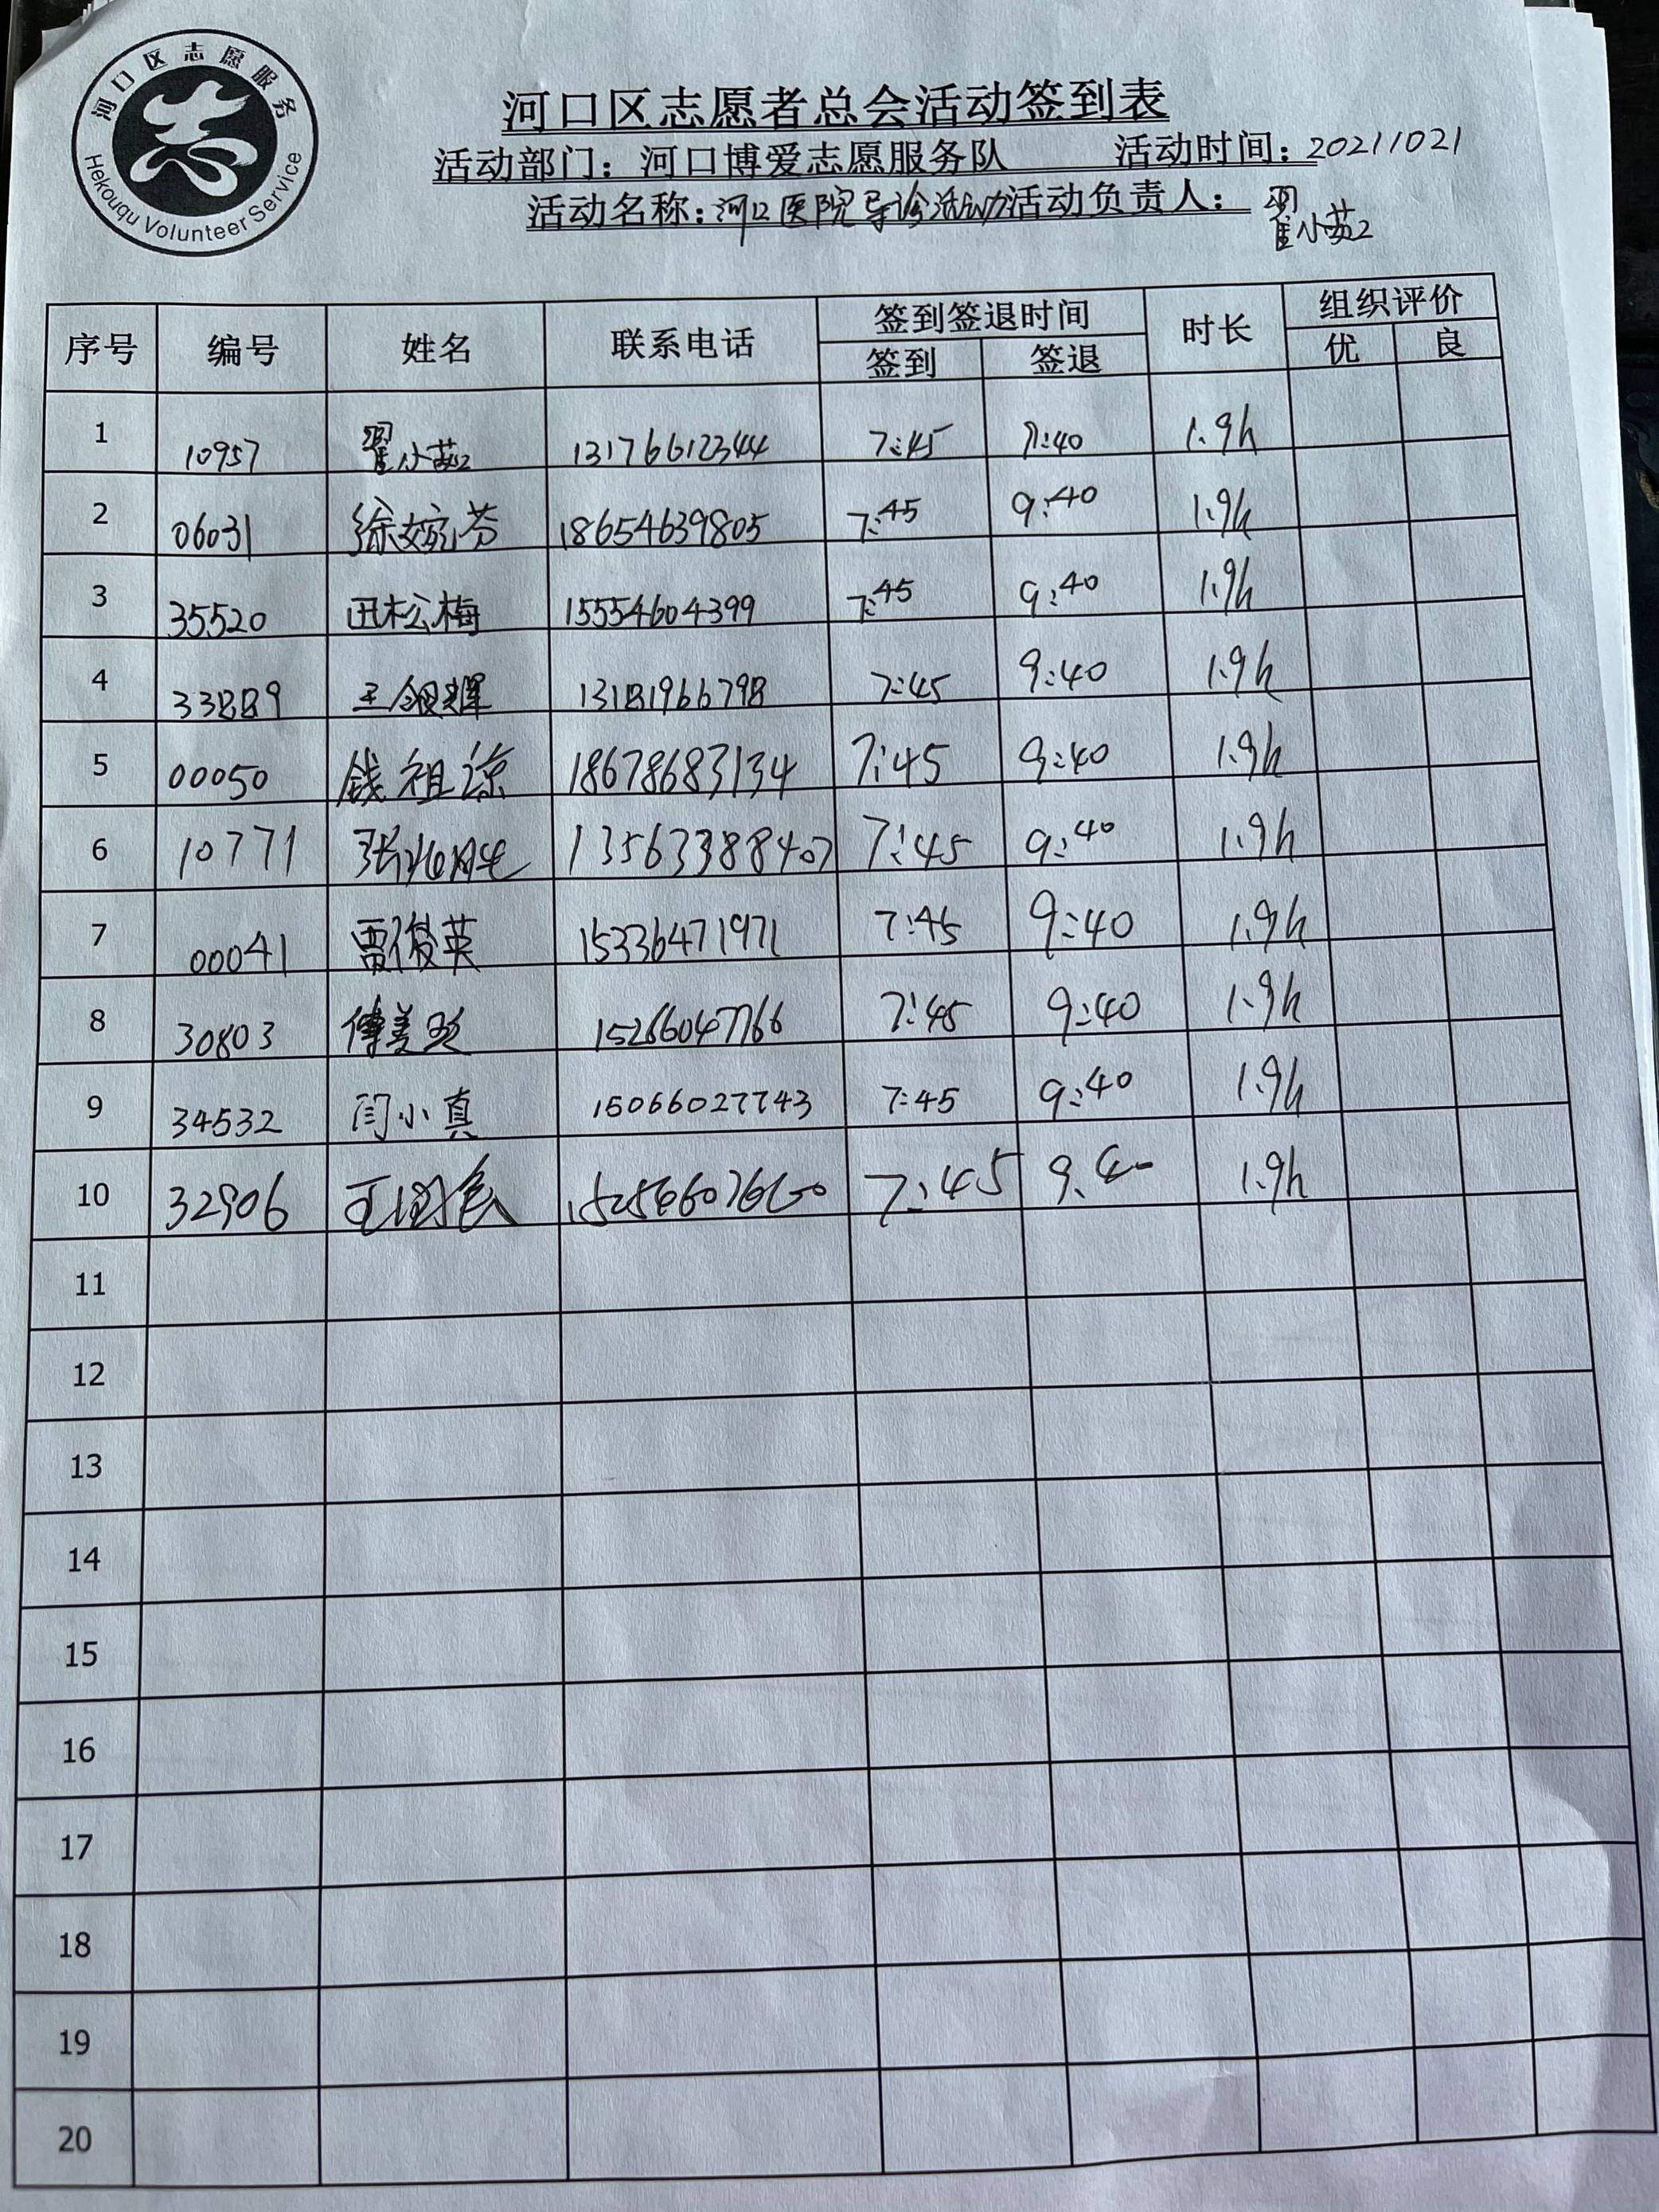 河口区志愿服务
Hekouqu Volunteer Service
河口区志愿者总会活动签到表
活动部门：河口博爱志愿服务队 活动时间：20211021
活动名称：河口医院导诊活动 活动负责人：翟小茹
序号 编号 姓名 联系电话 签到签退时间 时长 组织评价
签到 签退 优 良
1 10957 翟小茹 13176612344 7:45 9:40 1.9h
2 06031 徐婉芬 18654639805 7:45 9:40 1.9h
3 35520 田松梅 15554604399 7:45 9:40 1.9h
4 33889 王银辉 13181966798 7:45 9:40 1.9h
5 00050 钱祖凉 18678683134 7:45 9:40 1.9h
6 10771 13563388407 7:45 9:40 1.9h
7 00041 贾俊英 15336471971 7:45 9:40 1.9h
8 30803 傅美 15266047766 7:45 9:40 1.9h
9 34532 闫小真 15066027743 7:45 9:40 1.9h
10 32906 7:45 9:40 1.9h
11
12
13
14
15
16
17
18
19
20